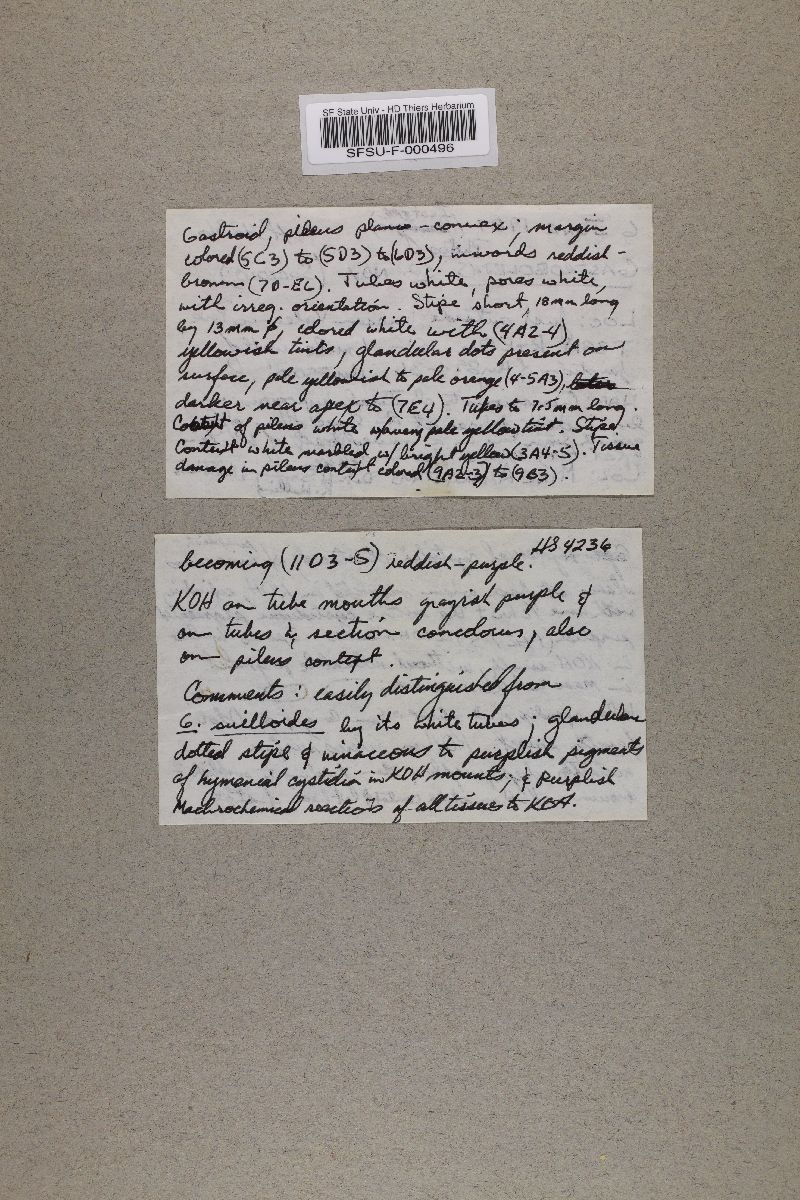 SF State Univ - HD Thiers Herbarium
SFSU-F-000496
Gastroid, pileus plano-convex; margin
colored (5C3) to (5D3) to (6D3), inwards reddish-
brown (7D-E6). Tubes white, pores white,
with irreg. orientation. Stipe short, 18mm long
by 13mm φ, colored white with (4A2-4)
yellowish tints, glandular dots present on
surface, pale yellowish to pale orange (4-5A3),
darker near apex to (7E4). Tubes to 7.5mm long.
Context of pileus white w/ pale yellow tint. Stipe
Context white marbled w/ bright yellow (3A4-5). Tissue
damage in pileus context colored (9A2-3) to (9B3).
HS4236
becoming (11D3-5) reddish-purple.
KOH on tube mouths grayish purple &
on tubes in section concolorus, also
on pileus context.
Comments: easily distinguished from
G. suilloides by its white tubes; glandular
dotted stipe & vinaceous to purplish pigments
of hymenial cystidia in KOH mounts; & purplish
Machrochemical reactions of all tissues to KOH.